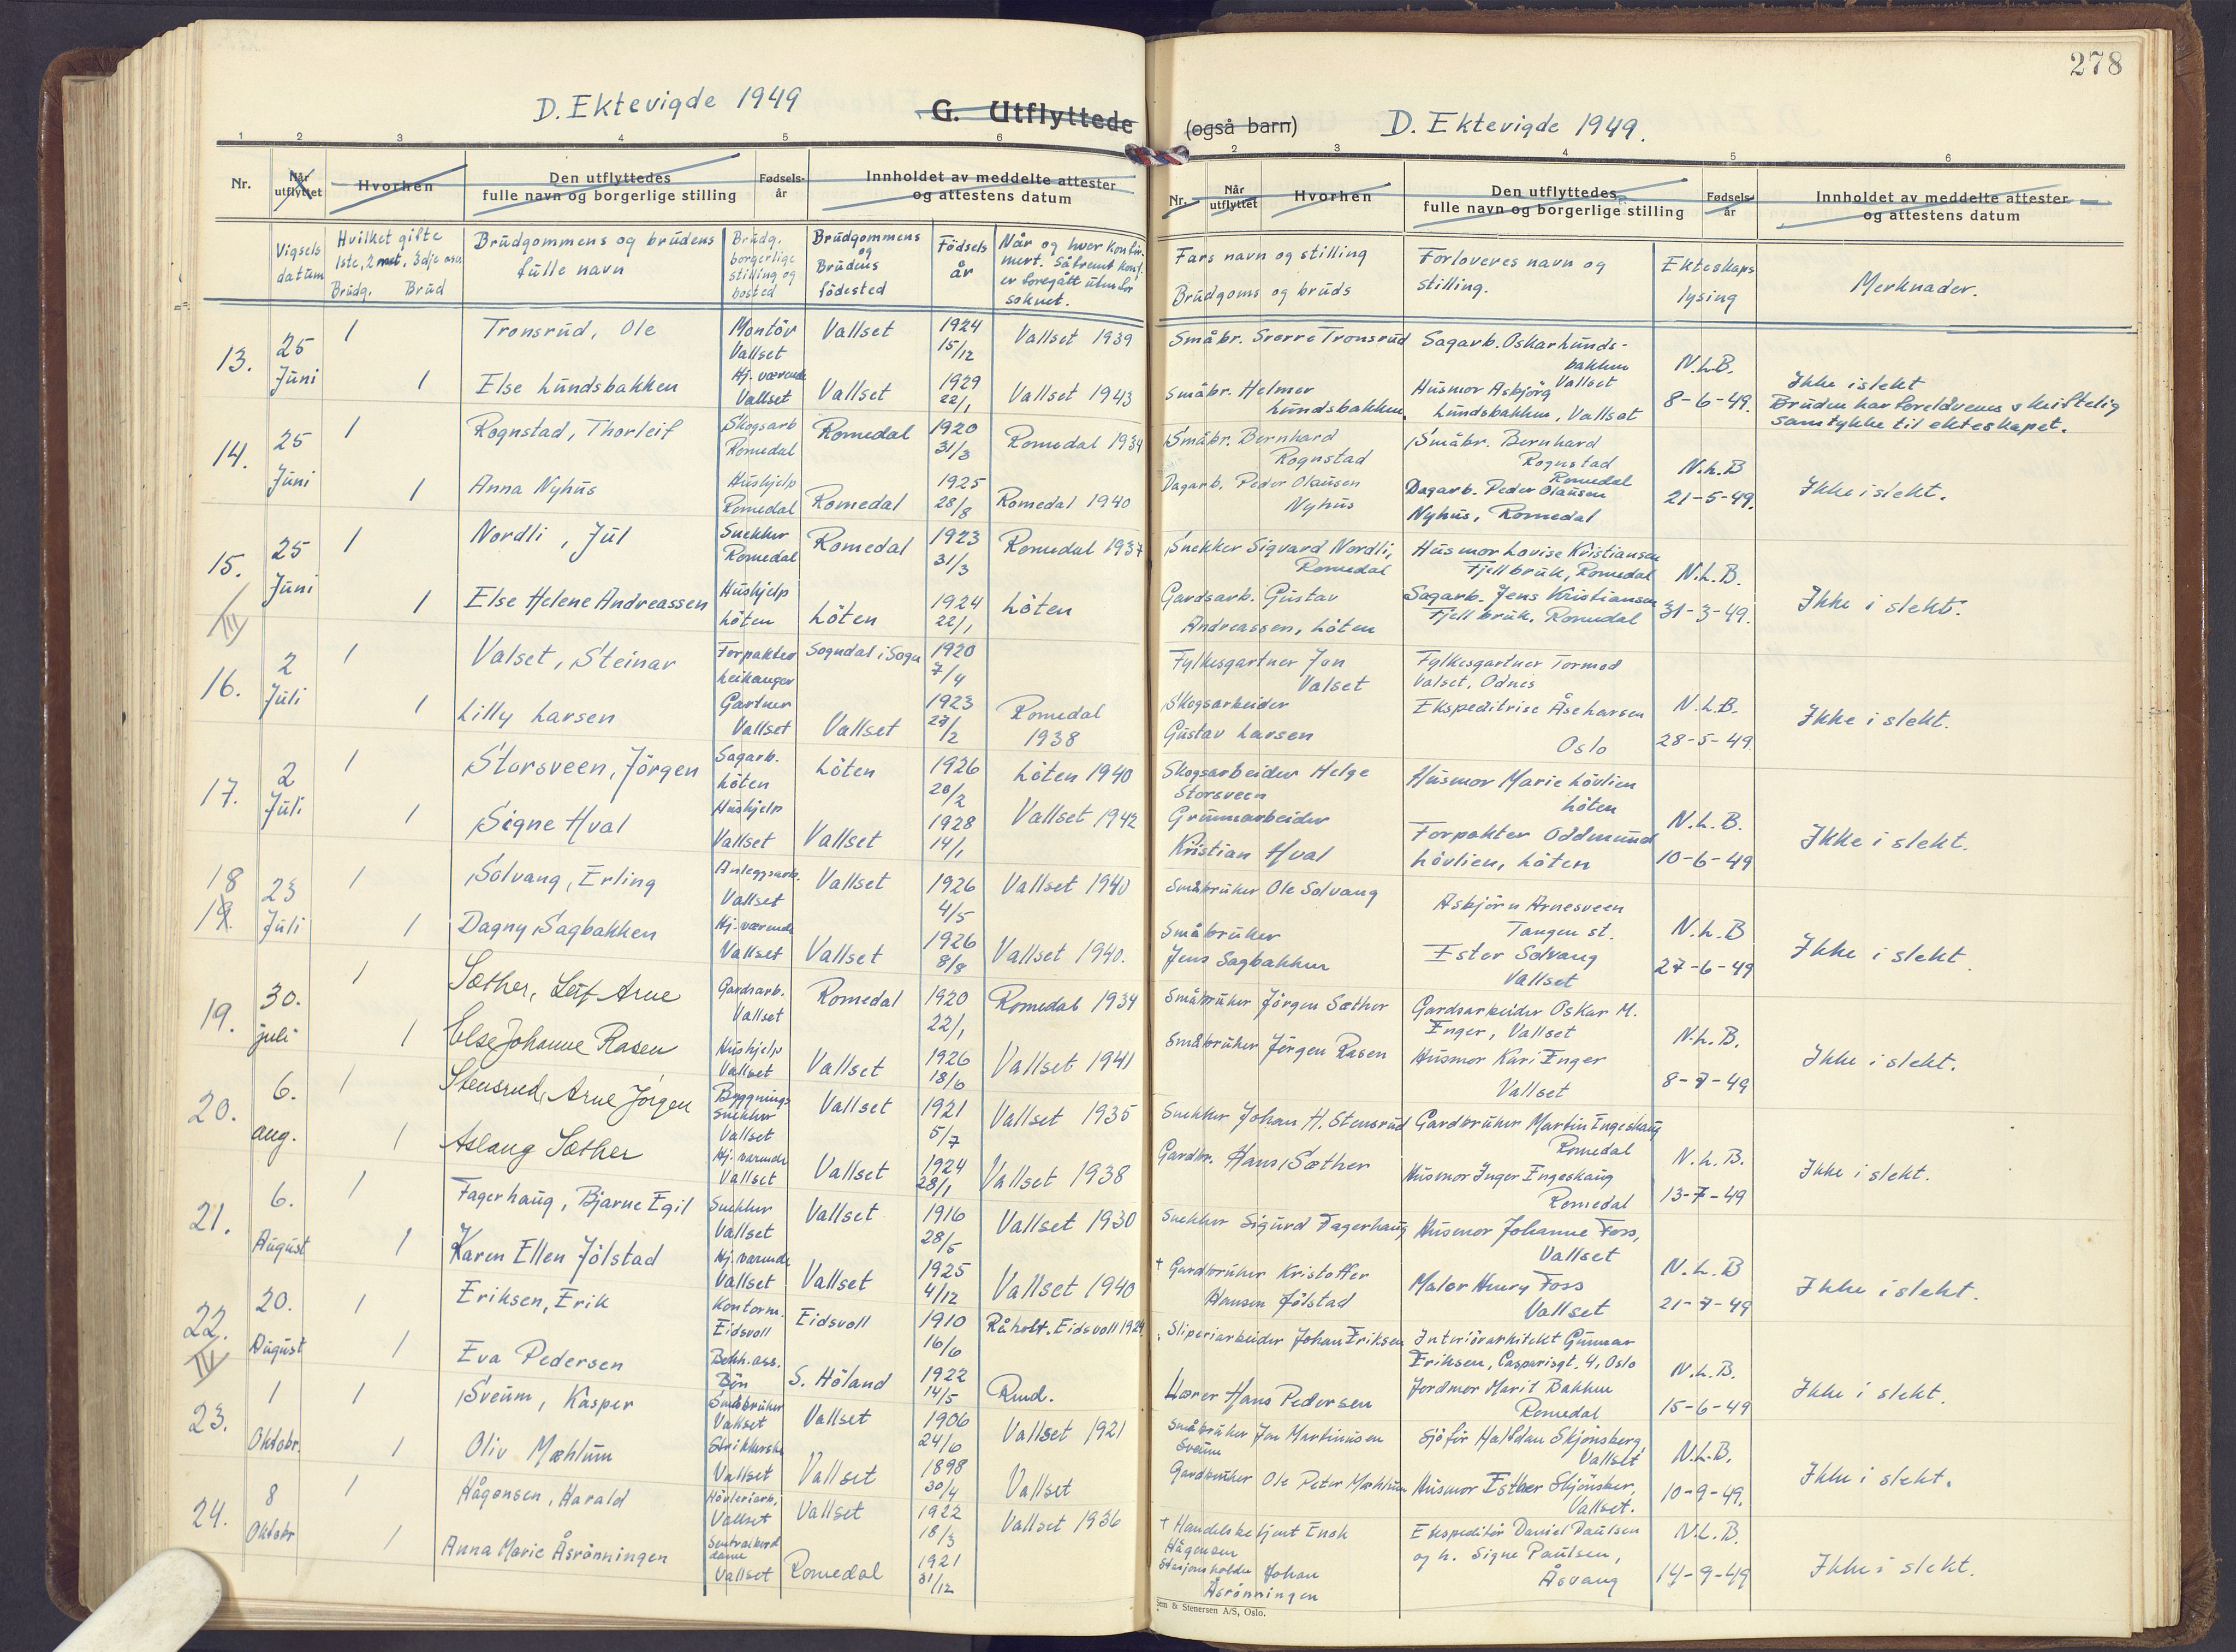 278
D. Ektevigde 1949
G. Utflyttede
(også barn)
D. Ektevigde 1949.
1 2 3 4 5 6
2 3 4 5 6
Nr.
Når utflyttet
Hvorhen
Den utflyttedes fulle navn og borgerlige stilling
Fødsels-år
Innholdet av meddelte attester og attestens datum
Nr.
Når utflyttet
Hvorhen
Den utflyttedes fulle navn og borgerlige stilling
Fødsels-år
Innholdet av meddelte attester og attestens datum
Vigsels datum
Hvilket gifte 1ste, 2net, 3dje osv. Brudg. Brud
Brudgommens og brudens fulle navn
Brudg. borgerlige stilling og bosted
Brudgommens og Brudens födested
Födsels år
Når og hvor konfirmert. Såfremt konf. er foregått utenfor soknet.
Fars navn og stilling
Brudgoms og bruds
Forloveres navn og stilling.
Ekteskaps lysing
Merknader.
13. 25 Juni
1 Tronsrud, Ole Montör Vallset Vallset 1924 15/12 Vallset 1939 Småbr. Sverre Tronsrud Sagarb. Oskar Lundsbakken Vallset
1 Else Lundsbakken Hj. værende Vallset Vallset 1929 22/1 Vallset 1943 Småbr. Helmer Lundsbakken. Husmor Asbjörg Lundsbakken, Vallset
N.L.B. 8-6-49. Ikke i slekt Bruden har foreldrenes skriftelig samtykke til ekteskapet.
14. 25 Juni
1 Rognstad, Thorleif Skogsarb Romedal Romedal 1920 31/3 Romedal 1934 Småbr. Bernhard Rognstad Småbr. Bernhard Rognstad Romedal
1 Anna Nyhus Hushjelp Romedal Romedal 1925 28/8 Romedal 1940 Dagarb. Peder Olausen Nyhus Dagarb. Peder Olausen Nyhus, Romedal
N.L.B 21-5-49. Ikke i slekt.
15. 25 Juni
III
1 Nordli, Jul Snekker Romedal Romedal 1923 31/3 Romedal 1937 Snekker Sigvard Nordli, Romedal Husmor Lovise Kristiansen Fjellbruk, Romedal
1 Else Helene Andreassen Hushjelp Löten Löten 1924 22/1 Löten Gardsarb. Gustav Andreassen, Löten Sagarb. Jens Kristiansen Fjellbruk, Romedal
N.L.B. 31-3-49. Ikke i slekt.
16. 2 Juli
1 Valset, Steinar Forpakter Leikanger Sogndal i Sogn 1920 7/4 Fylkesgartner Jon Valset Fylkesgartner Tormod Valset, Odnes
1 Lilly Larsen Gartner Vallset Vallset 1923 27/2 Romedal 1938 Skogsarbeider Gustav Larsen Ekspeditrise Åse Larsen Oslo
N.L.B. 28-5-49. Ikke i slekt.
17. 2 Juli
1 Storsveen, Jörgen Sagarb. Löten Löten 1926 20/2 Löten 1940 Skogsarbeider Helge Storsveen Husmor Marie Lövlien Löten
1 Signe Hval Hushjelp Vallset Vallset 1928 14/1 Vallset 1942 Grunnarbeider Kristian Hval Forpakter Oddmund Lövlien, Löten
N.L.B. 10-6-49 Ikke i slekt.
18 19. 23 Juli
1 Solvang, Erling Anleggsarb. Vallset Vallset 1926 4/5 Vallset 1940 Småbruker Ole Solvang Asbjörn Arnesveen Tangen st.
1 Dagny Sagbakken Hj. værende Vallset Vallset 1926 8/8 Vallset 1940. Småbruker Jens Sagbakken Ester Solvang Vallset
N.L.B 27-6-49 Ikke i slekt.
19. 30. juli
1 Sæther, Leif Arne Gardsarb. Vallset Romedal 1920 22/1 Romedal 1934 Småbruker Jörgen Sæther Gardsarbeider Oskar M. Enger, Vallset
1 Else Johanne Rasen Hushjelp Vallset Vallset 1926 18/6 Vallset 1941 Småbruker Jörgen Rasen Husmor Kari Enger Vallset
N.L.B. 8-7-49 Ikke i slekt.
20. 6. aug.
1 Stensrud, Arne Jörgen Bygnings snekker Vallset Vallset 1921 5/7 Vallset 1935 Snekker Johan H. Stensrud Gardbruker Martin Engeshaug Romedal
1 Aslaug Sæther Hj. værende Vallset Vallset 1924 28/1 Vallset 1938 Gardbr. Hans Sæther Husmor Inger Engeshaug Romedal
N.L.B. 13-7-49 Ikke i slekt.
21. 6. August
1 Fagerhaug, Bjarne Egil Snekker Vallset Vallset 1916 28/5 Vallset 1930 Snekker Sigurd Fagerhaug Husmor Johanne Foss, Vallset
1 Karen Ellen Jölstad Hj. værende Vallset Vallset 1925 4/12 Vallset 1940 + Gardbruker Kristoffer Hansen Jölstad Maler Henry Foss Vallset
N.L.B 21-7-49 Ikke i slekt.
22. 20. August
IV
1 Eriksen, Erik Kontorm. Eidsvoll Eidsvoll 1910 16/6 Råholt. Eidsvoll 1924 Sliperiarbeider Johan Eriksen Interiörarkitekt Gunnar Eriksen, Casparisgt. 4, Oslo
1 Eva Pedersen Bekh. ass. Bön S. Höland 1922 14/5 Rud. Lærer Hans Pedersen Jordmor Marit Bakken Romedal
N.L.B. 15-6-49 Ikke i slekt.
23. 1 Oktobr.
1 Sveum, Kasper Småbruker Vallset Vallset 1906 24/6 Vallset 1921 Småbruker Jon Martinusen Sveum Sjåför Halfdan Skjönsberg Vallset
1 Oliv Mæhlum Strikkerske Vallset Vallset 1898 30/4 Vallset Gardbruker Ole Peter Mæhlum Husmor Esther Skjönsber, Vallset.
N.L.B. 10-9-49. Ikke i slekt.
24. 8 Oktobr
1 Hågensen, Harald Hövleriarb. Vallset Vallset 1922 18/3 Vallset 1936 + Handelsbetjent Enok Hågensen Ekspeditör Daniel Paulsen
1 Anna Marie Åsrönningen Sentralbord dame Vallset Romedal 1921 31/12 Stasjonsholder Johan Åsrönningen og h. Signe Paulsen, Åsvang
N.L.B. 14-9-49 Ikke i slekt.
Sem & Stenersen A/S, Oslo.